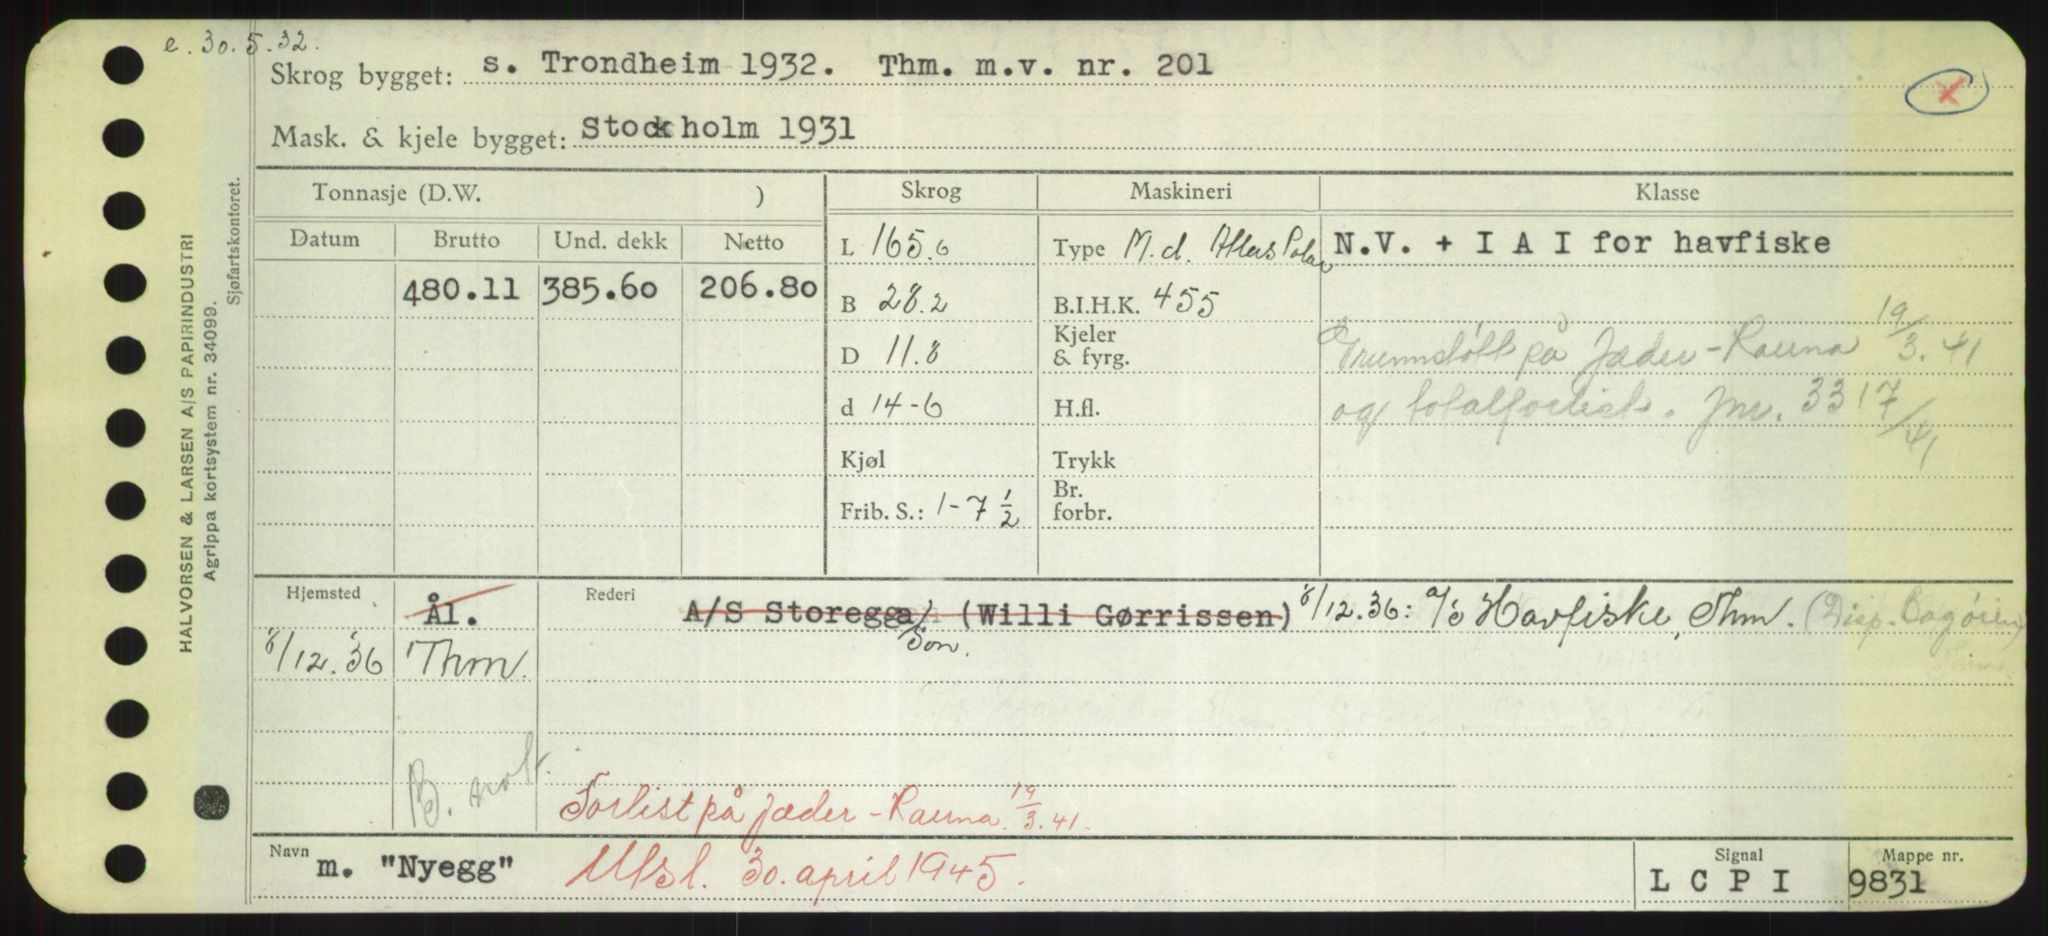 e. 30.5.32.
Skrog bygget: s. Trondheim 1932. Thm. m.v. nr. 201
x
Mask. & kjele bygget: Stockholm 1931
Tonnasje (D.W. )
Skrog
Maskineri
Klasse
Datum
Brutto
Und. dekk
Netto
480.11
385.60
206.80
L 165.6
B 28.2
D 11.8
d 14-6
Kjøl
Frib. S.: 1-7 1/2
Type M.d. Atlas Polar
B.I.H.K. 455
Kjeler
& fyrg.
H.fl.
Trykk
Br.
forbr.
N.V. + I A I for havfiske
Grunnstøtt på Jæder-Rauna 19/3.41
og totalforlist. Jnr. 3317/41
Hjemsted
Ål.
Rederi
A/S Storegga (Willi Gørrissen) 8/12.36: A/S Havfiske, Thm. (Disp.
8/12.36 Thm.
Forlist på Jæder-Rauna. 19/3.41.
Navn
m. "Nyegg"
Utsl. 30. april 1945.
Signal
L C P I
Mappe nr.
9831
HALVORSEN & LARSEN A/S PAPIRINDUSTRI
Agrippa kortsystem nr. 34099.
Sjøfartskontoret.